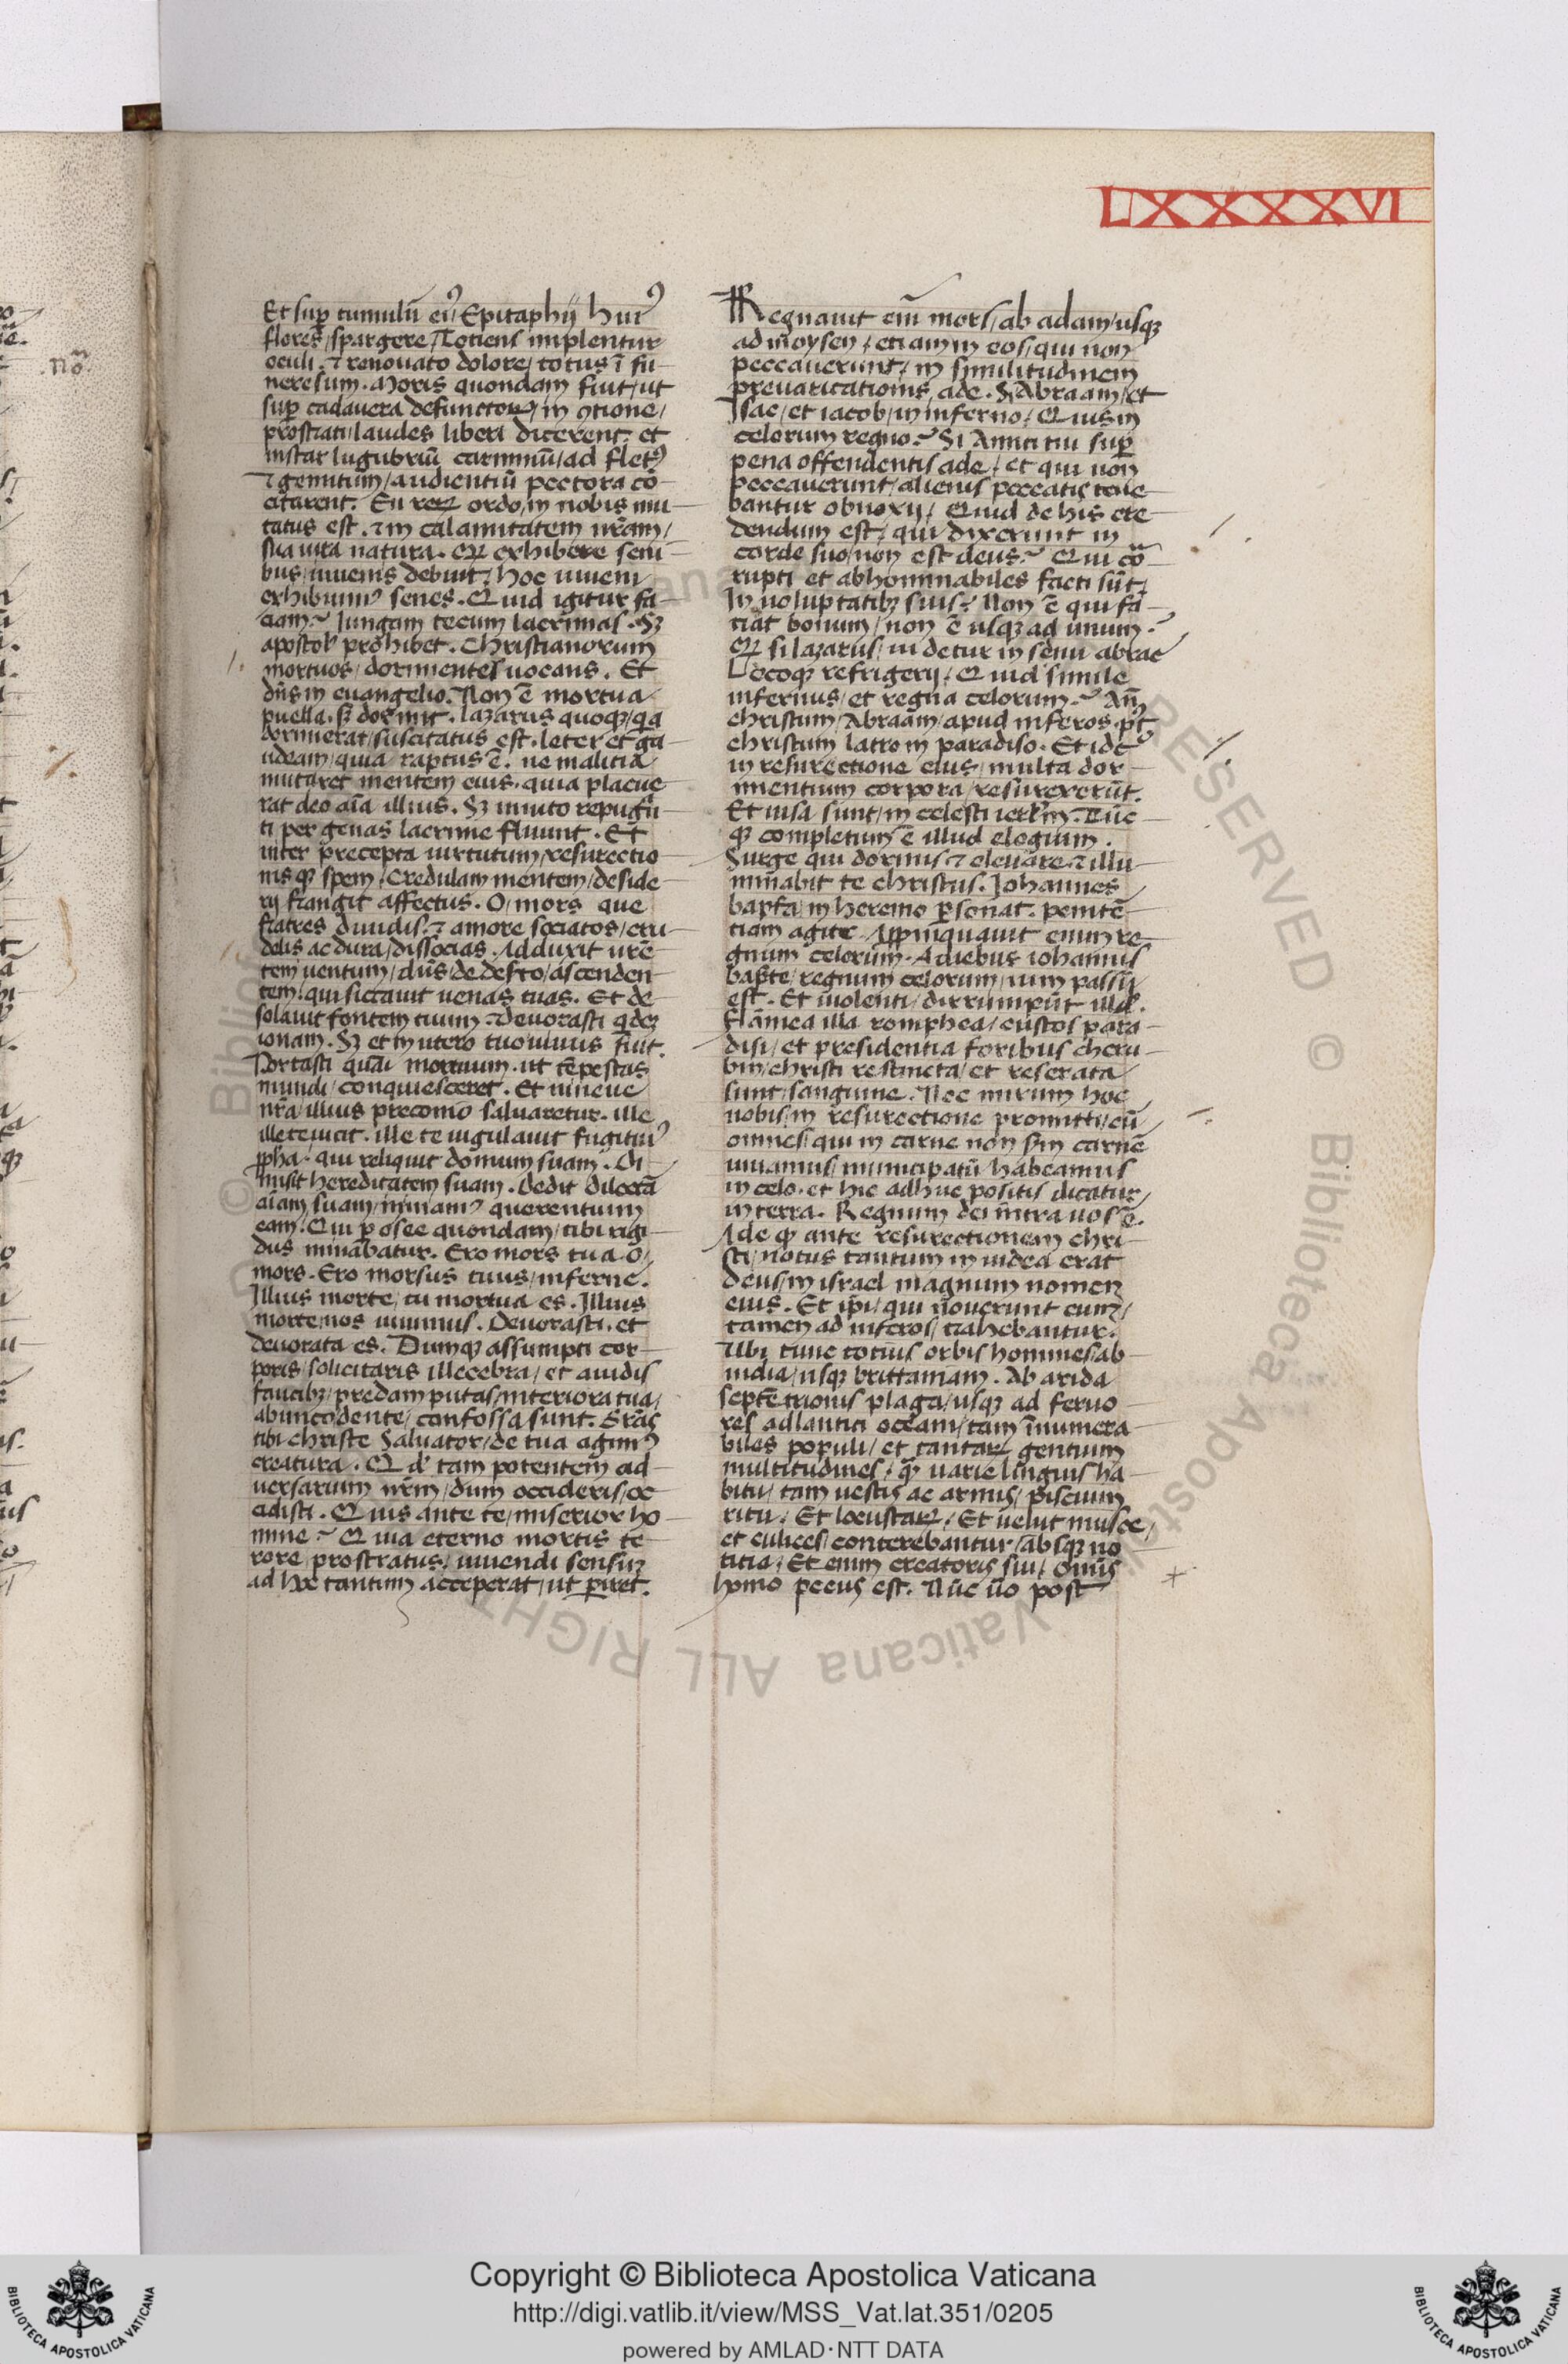 LXXXXVI
.no.
Et sup tumulū ei9/Epitaphij hui9
flores/spargere/Totiens implentur
oculi. ⁊ renouato dolore/totus ī fu-
nere sum. Moris quondam fuit/ut
sup cadauera defunctoꝝ/in ↄtione/
prostrati/laudes liberi dicerent. et
instar lugubriū carminū/ad flet9
⁊ gemitum/audientiū pectora cō-
citarent. En reꝝ ordo/in nobis mu-
tatus est. ⁊ in calamitatem nrām/
sua iura natura. Qꝫ exhibere seni-
bus/iuuenis debuit/hoc iuueni
exhibuim9 senes. Quid igitur fa-
ciam? Iungam tecum lacrimas. Sꝫ
apostol' prohibet. Christianorum
mortuos/dormientes uocans. Et
dn̄s in euangelio. Non ē mortua
puella. sꝫ dormit. Lazarus quoqꝫ/qa
dormierat/suscitatus est. Leter et ga-
udeam/quia raptus ē. ne malicia
mutaret mentem eius. quia placue
rat deo aīa illius. Sꝫ inuito repugn̄
ti per genas lacrime fluunt. Et
inter precepta uirtutum/resurectio-
nis qꝫ spem/Credulam mentem/deside-
rij frangit affectus. O/mors que
fratres diuidis. ⁊ amore sociatos/cru-
delis ac dura/dissocias. Adduxit urē-
tem uentum/dn̄s/de deserto/ascenden-
tem. qui siccauit uenas tuas. Et de-
solauit fontem tuum. Deuorasti qdeꝫ
ionam. Sꝫ et in utero tuo uiuus fuit.
Portasti quāi mortuum. ut tēpestas
mundi/conquiesceret. Et niniue
nr̄a illius preconio saluaretur. ille
ille te uicit. ille te iugulauit fugitiu9
ꝓpha. qui reliquit domum suam. Di-
misit hereditatem suam. dedit dilectā
aīam suam/in manu9 querentium
eam. Qui p osee quondam/tibi rigi-
dus minabatur. Ero mors tua o/
mors. Ero morsus tuus/inferne.
Illius morte/tu mortua es. Illius
morte/nos uiuimus. Deuorasti. et
deuorata es. Dumqꝫ assumpti cor-
poris/solicitaris illecebra/et auidis
faucibꝫ/predam putas/interiora tua/
ab unco/dente/confossa sunt. Grās
tibi christe saluator/de tua agim9
creatura. Q d' tam potentem ad-
uersarium nr̄m/dum occideris/oc-
cidisti. Quis ante te/miserior ho-
mine? Quia eterno mortis te-
rore prostratus/uiuendi sensuꝫ
ad hoc tantum acceperat/ut piret.
Regnauit eī mors/ab adam/usqꝫ
ad moysen/etiam in eos/qui non
peccauerunt/in similitudinem
preuaricationis ade. Si Abraam/et
Isac/et iacob/in inferno/Quis in
celorum regno? Si Amici tui sup
pena offendentis ade/et qui non
peccauerunt/alienis peccatis tene-
bantur obnoxij/Quid de his cre-
dendum est/qui dixerunt in
corde suo/non est deus? Qui cō-
rupti et abhominabiles facti sūt/
In uoluptatibꝫ suis? Non ē qui fa-
ciat bonum/non ē usqꝫ ad unum.
Qꝫ si lazarus/uidetur in sinu abrae
Locoqꝫ refrigerij/Quid simile
infernus/et regna celorum? Añ
christum/Abraam/apud inferos. pt
christum latro in paradiso. Et idc9
in resurectione eius/multa dor-
mientium corpora/resurexerūt.
Et uisa sunt/in celesti ierlm̄. Tūc
qꝫ completum ē illud elogium.
Surge qui dormis ⁊ eleuare ⁊ illu-
minabit te christus. Iohannes
bapta/in heremo psonat. penitē-
tiam agite. Appinquauit enim re-
gnum celorum. A diebus iohannis
bapte/regnum celorum/uim passū
est. Et uiolenti/dirrumpūt illd'.
Flāmea illa romphea/custos para-
disi/et presidentia foribus cheru-
bin/christi restincta/et reserata
sunt/sanguine. Nec mirum hoc
nobis/in resurectione promitti/cū
omnes/qui in carne non sm carnē
uiuamus/municipatū habeamus
in celo. et hic adhuc positis dicatur/
in terra. Regnum dei intra uos ē.
Ade qꝫ ante resurectionem chri-
sti/notus tantum in iudea erat
deus/in israel magnum nomen
eius. Et ip̄i/qui nouerunt eum/
tamen ad inferos/trahebantur.
Ubi tunc totius orbis homines/ab
india/usqꝫ brittaniam. Ab arida
septētrionis plaga/usqꝫ ad feruo-
res adlantici oceani/tam inumera-
biles populi/et tantaꝝ gentium
multitudines/qꝫ uarie linguis ha-
bitu/tam uestis ac armis/Piscium
ritu/Et locustaꝝ/Et uelut musce/
et culices/conterebantur/absqꝫ no
titia/Et enim creatoris sui/omis
homo pecus est. Nūc uo post
Copyright © Biblioteca Apostolica Vaticana
http://digi.vatlib.it/view/MSS_Vat.lat.351/0205
powered by AMLAD·NTT DATA
BIBLIOTECA APOSTOLICA VATICANA
BIBLIOTECA APOSTOLICA VATICANA